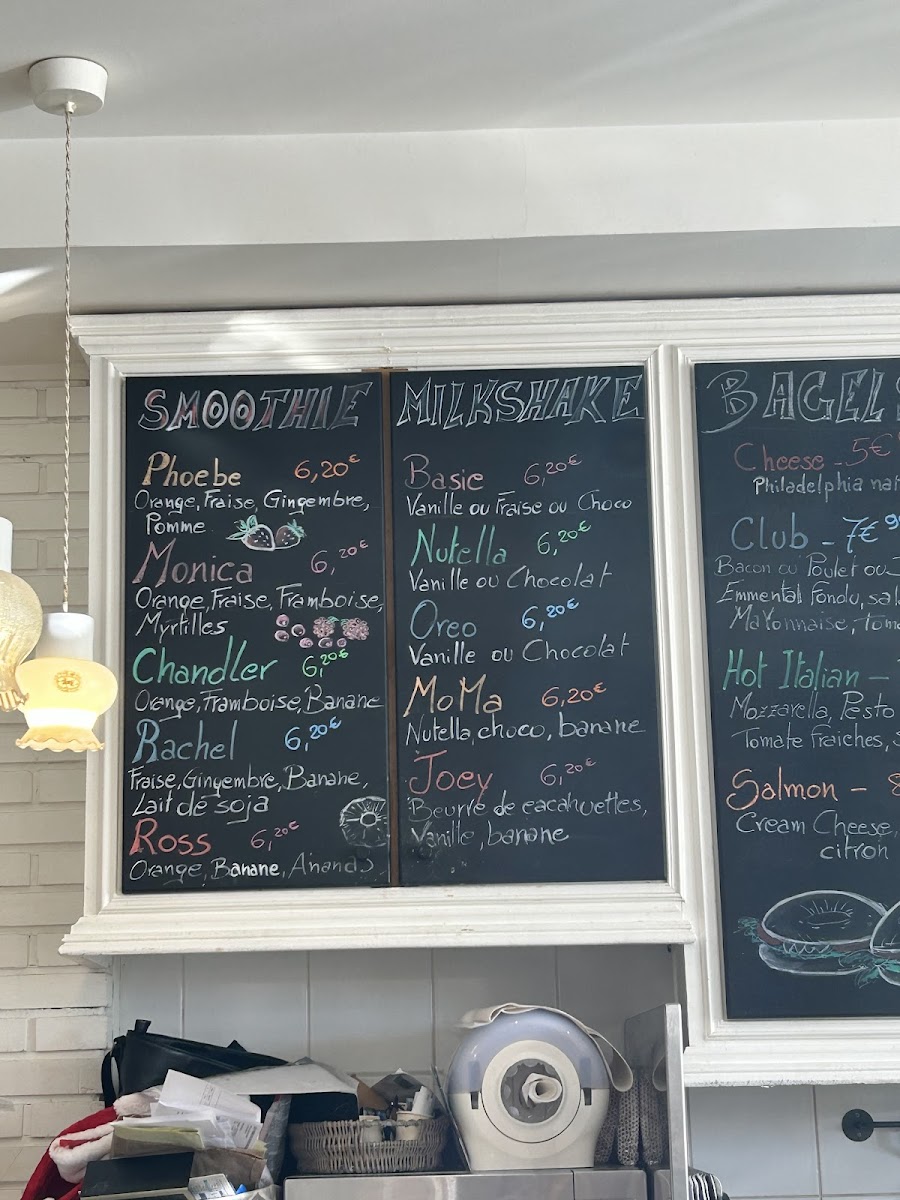 SMOOTHIE
Phoebe 6,20€
Orange, Fraise, Gingembre,
Pomme
Monica 6,20€
Orange, Fraise, Framboise,
Myrtilles
Chandler 6,20€
Orange, Framboise, Banane
Rachel 6,20€
Fraise, Gingembre, Banane,
Lait de soja
Ross 6,20€
Orange, Banane, Ananas
MILKSHAKE
Basic 6,20€
Vanille ou Fraise ou Choco
Nutella 6,20€
Vanille ou Chocolat
Oreo 6,20€
Vanille ou Chocolat
MoMa 6,20€
Nutella, choco, banane
Joey 6,20€
Beurre de cacahuettes,
Vanille, banane
BAGELS
Cheese - 5€
Philadelphia
Club - 7€
Bacon ou Poulet ou
Emmental Fondu,
Mayonnaise,
Hot Italian -
Mozzarella, Pesto
Tomate fraiches,
Salmon -
Cream Cheese,
citron